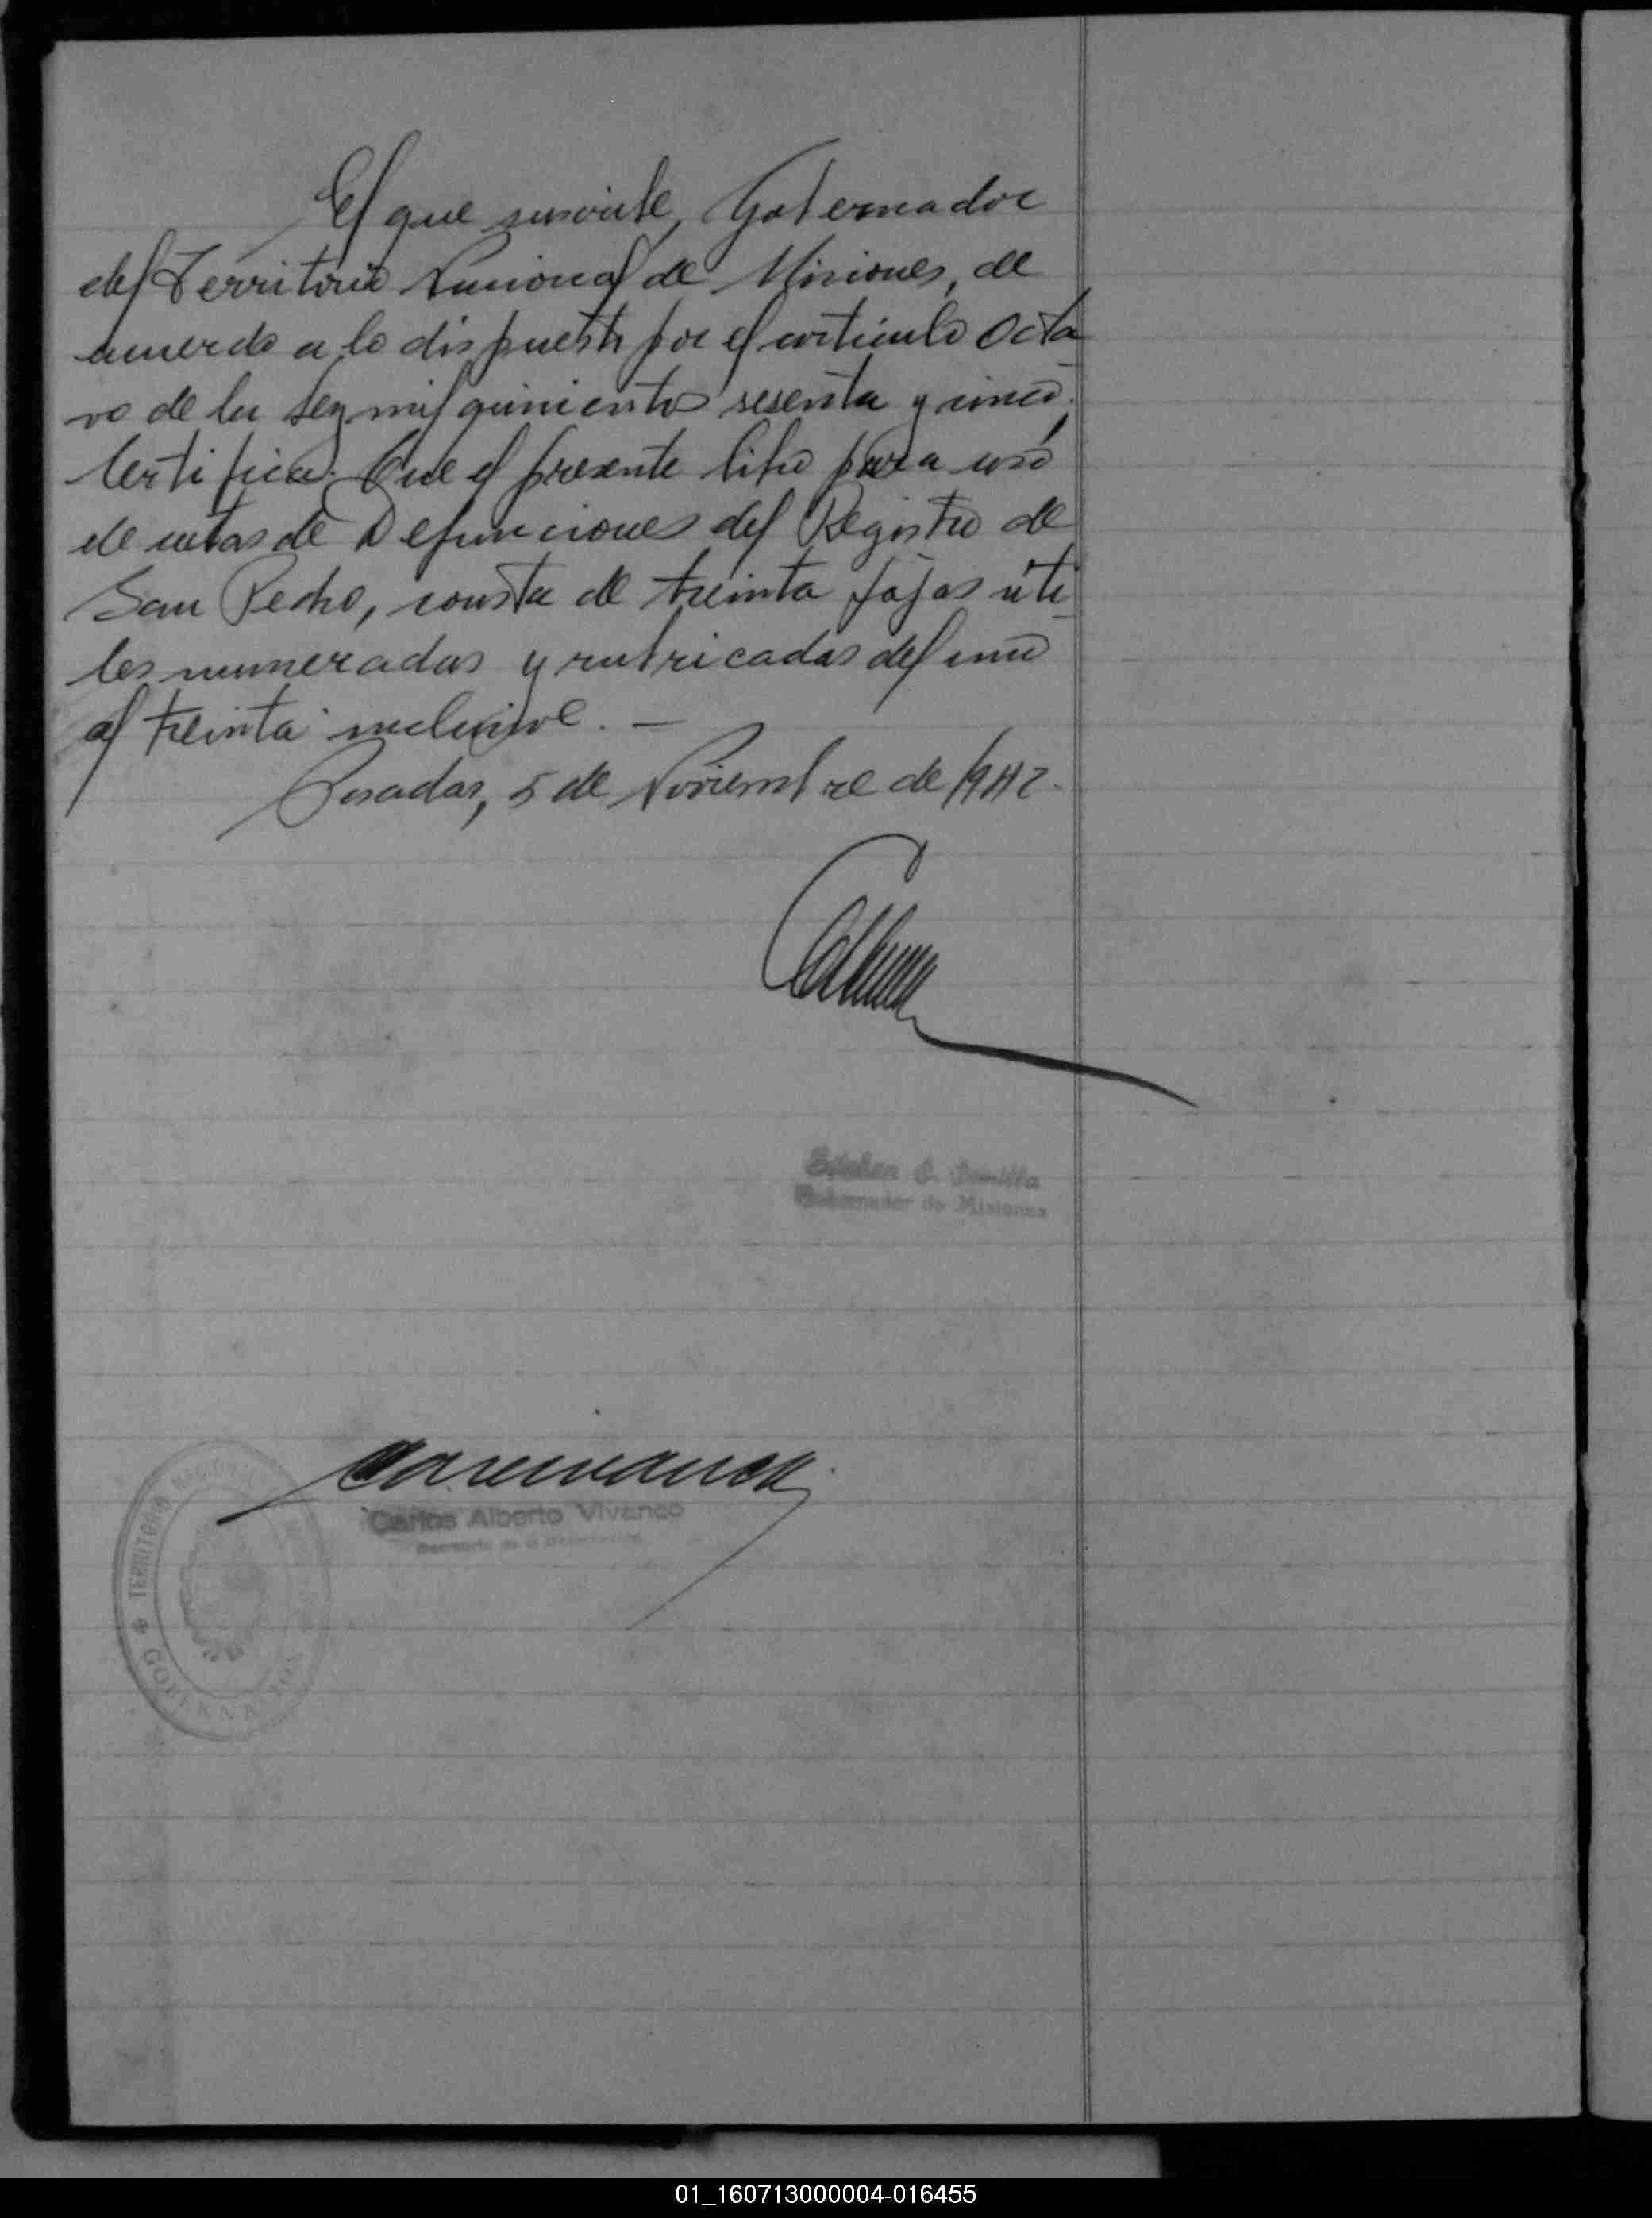 El que suscribe, Gobernador
del Territorio Nacional de Misiones, de
acuerdo a lo dispuesto por el artículo Octa
vo de la Ley mil quinientos sesenta y cinco,
Certifica: Que el presente libro para uso
de actas de Defunciones del Registro de
San Pedro, consta de treinta fojas úti
les numeradas y rubricadas del uno
al treinta inclusive. —
Posadas, 5 de Noviembre de 1942.
Gobernador de Misiones
Carlos Alberto Vivanco
TERRITORIO NACIONAL
GOBERNACION
01_160713000004-016455